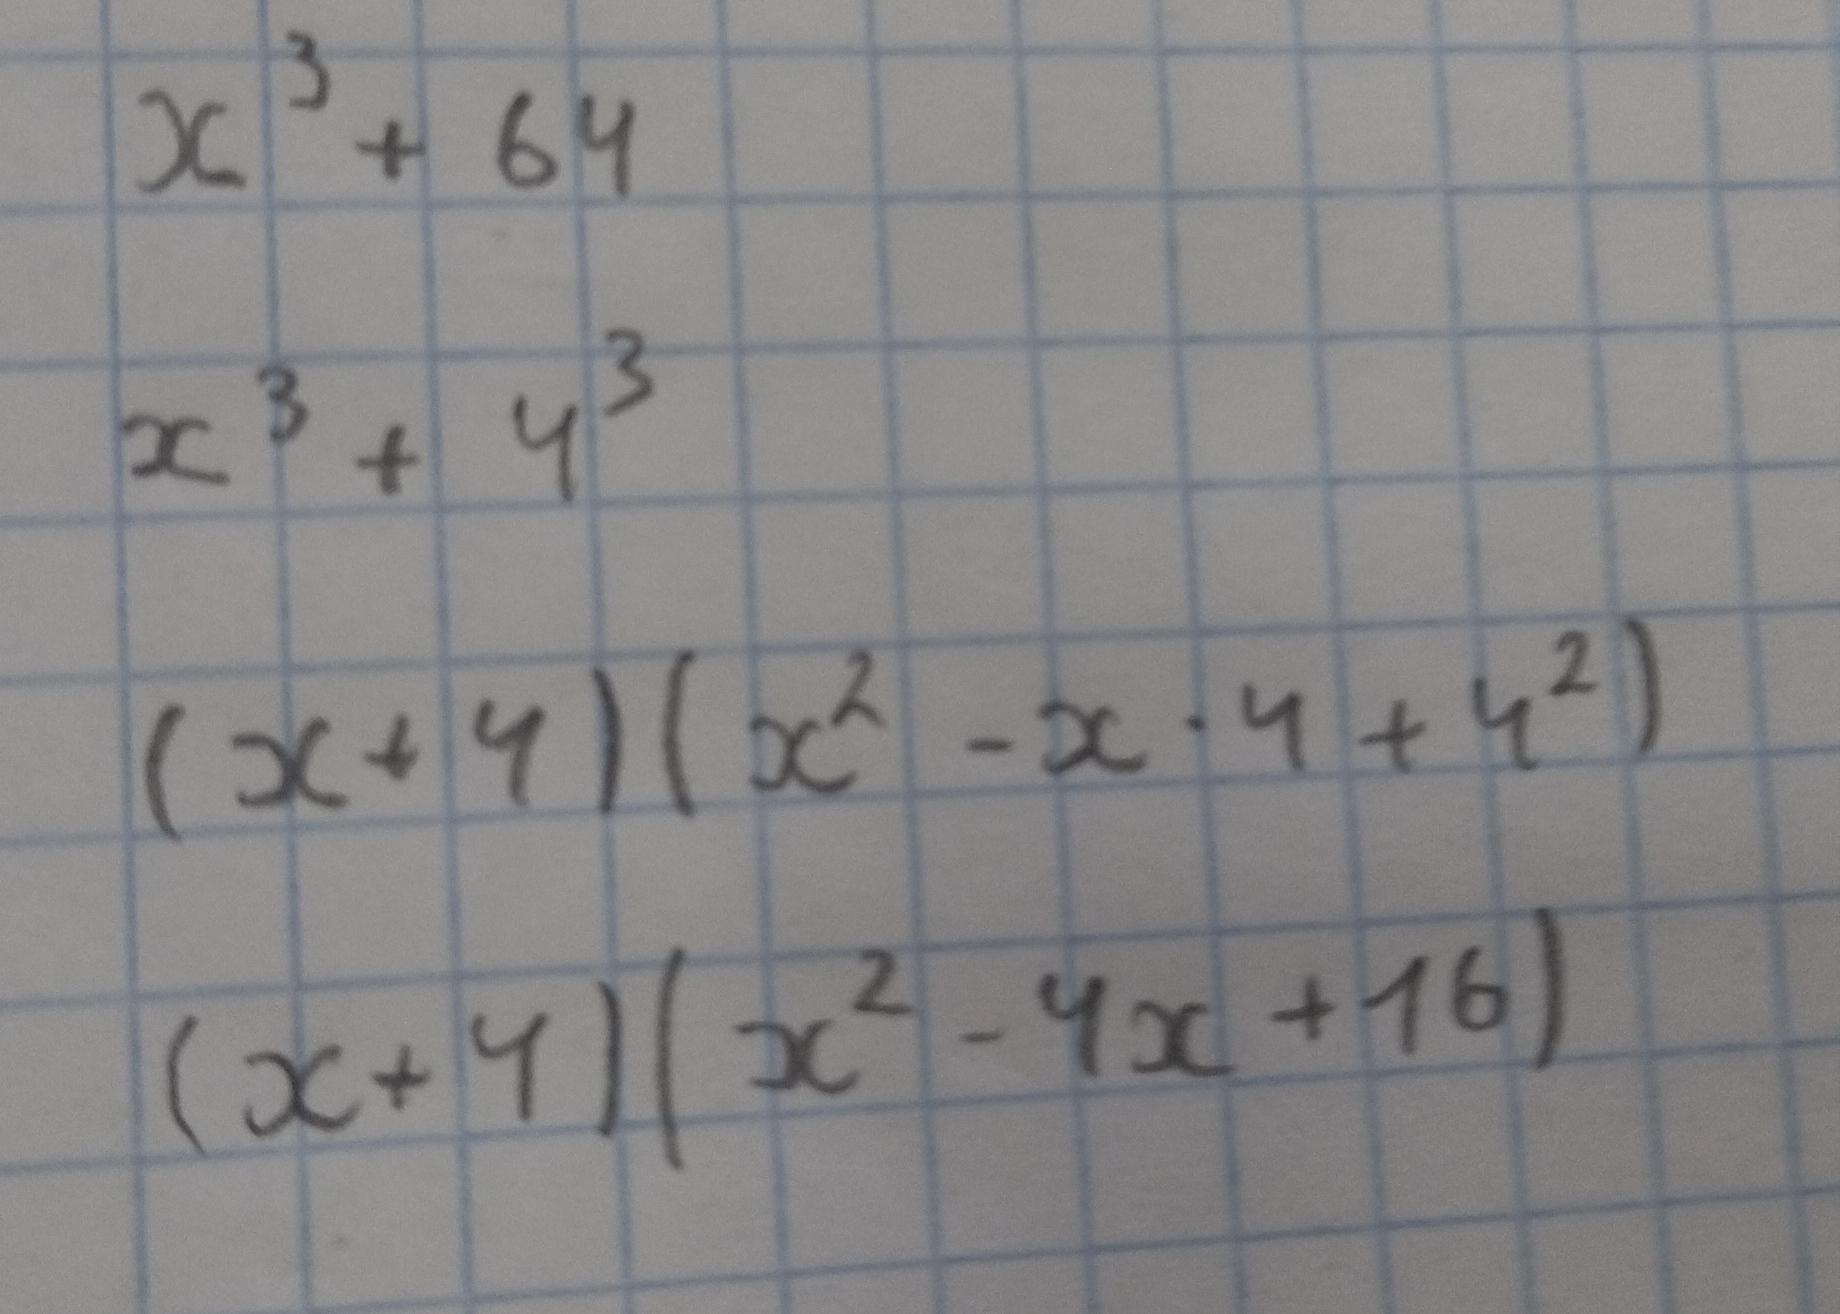 x³ + 64
x³ + 4³
(x + 4)(x² - x · 4 + 4²)
(x + 4)(x² - 4x + 16)